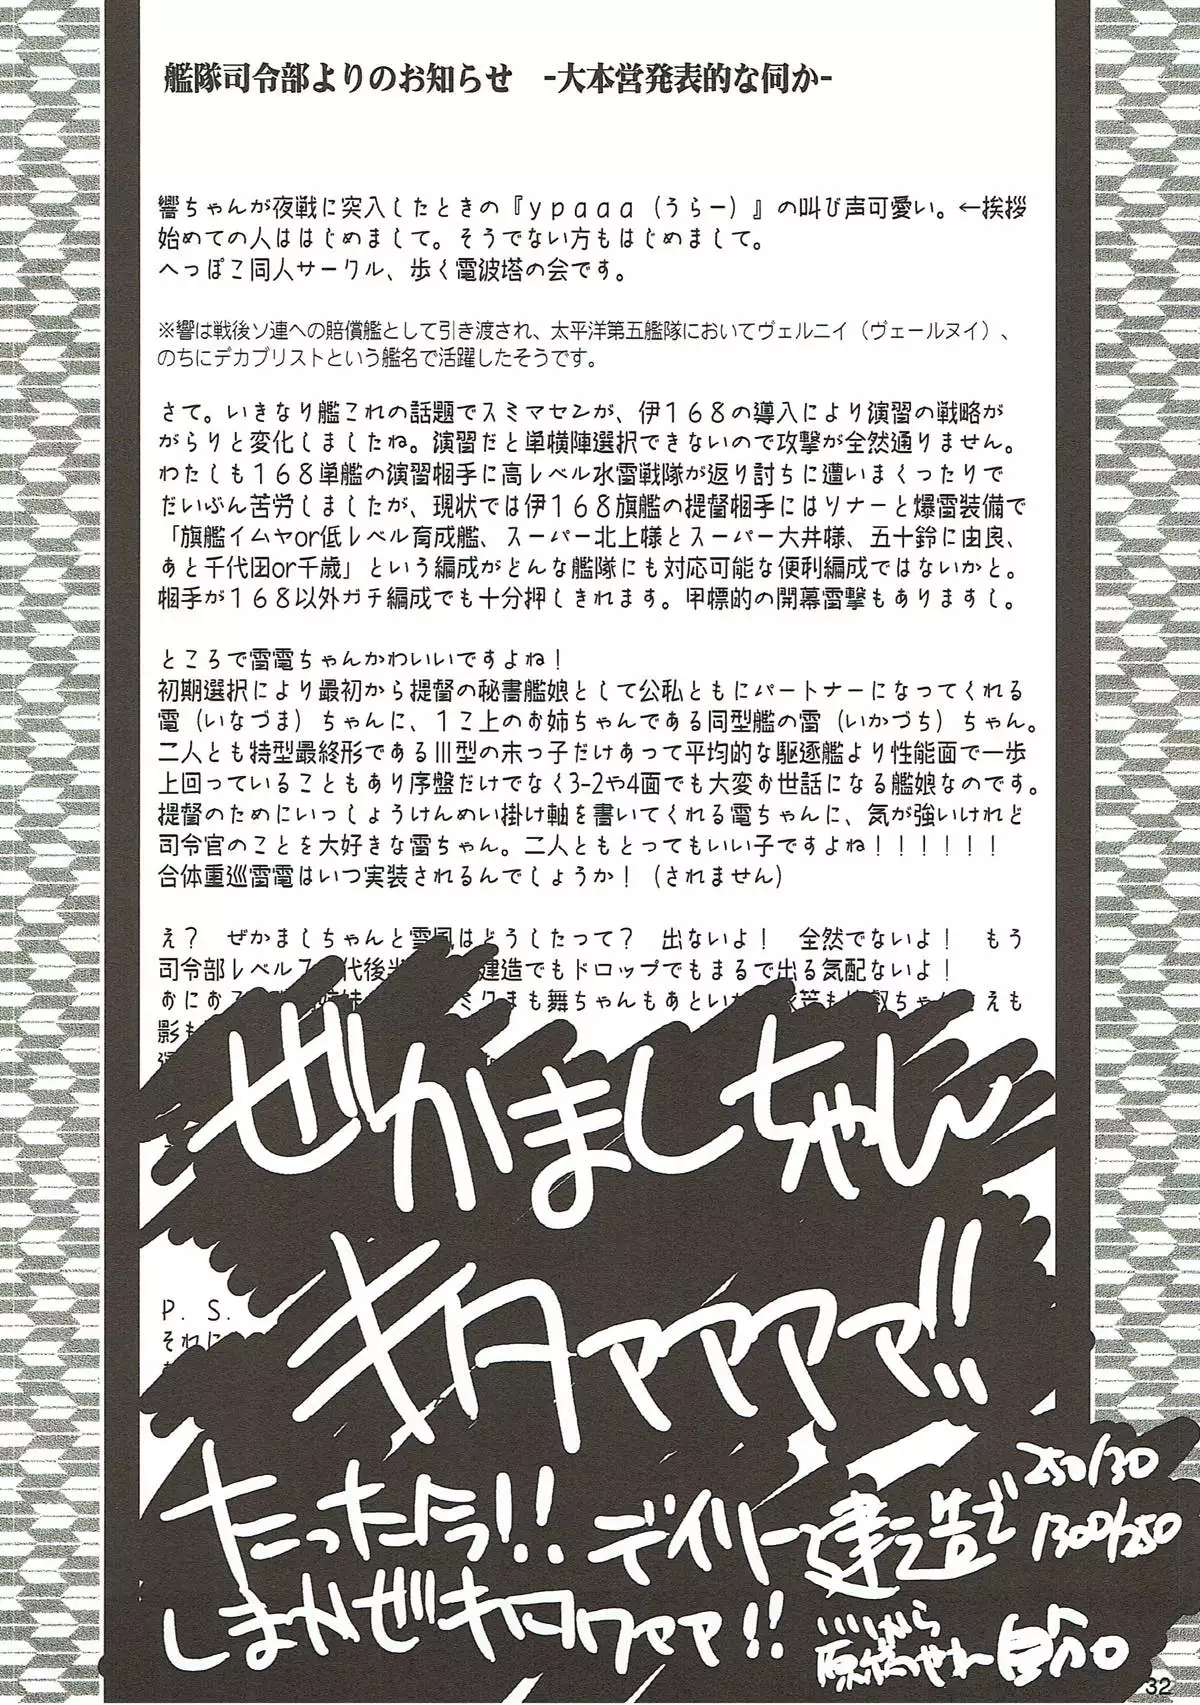 艦隊司令部よりのお知らせ　-大本営発表的な何か-
響ちゃんが夜戦に突入したときの『ypaaa（うらー）』の叫び声可愛い。←挨拶
始めての人ははじめまして。そうでない方もはじめまして。
へっぽこ同人サークル、歩く電波塔の会です。
※響は戦後ソ連への賠償艦として引き渡され、太平洋第五艦隊においてヴェルニイ（ヴェールヌイ）、
のちにデカブリストという艦名で活躍したそうです。
さて。いきなり艦これの話題でスミマセンが、伊１６８の導入により演習の戦略が
がらりと変化しましたね。演習だと単横陣選択できないので攻撃が全然通りません。
わたしも１６８単艦の演習相手に高レベル水雷戦隊が返り討ちに遭いまくったりで
だいぶん苦労しましたが、現状では伊１６８旗艦の提督相手にはソナーと爆雷装備で
「旗艦イムヤor低レベル育成艦、スーパー北上様とスーパー大井様、五十鈴に由良、
あと千代田or千歳」という編成がどんな艦隊にも対応可能な便利編成ではないかと。
相手が１６８以外ガチ編成でも十分押しきれます。甲標的の開幕雷撃もありますし。
ところで雷電ちゃんかわいいですよね！
初期選択により最初から提督の秘書艦娘として公私ともにパートナーになってくれる
電（いなづま）ちゃんに、１こ上のお姉ちゃんである同型艦の雷（いかづち）ちゃん。
二人とも特型最終形であるⅢ型の末っ子だけあって平均的な駆逐艦より性能面で一歩
上回っていることもあり序盤だけでなく3-2や4面でも大変お世話になる艦娘なのです。
提督のためにいっしょうけんめい掛け軸を書いてくれる電ちゃんに、気が強いけれど
司令官のことを大好きな雷ちゃん。二人ともとってもいい子ですよね！！！！！！
合体重巡雷電はいつ実装されるんでしょうか！（されません）
え？　ぜかましちゃんと雪風はどうしたって？　出ないよ！　全然でないよ！　もう
司令部レベル７　代後半　建造でもドロップでもまるで出る気配ないよ！
おにお　まも舞ちゃんもあと　ちゃん　えも
影も
ぜかましちゃん
キタァアアア!!
P. S.
それに
たった今!! デイリー建造で 250/30
1300/250
しまかぜキタワァア!!
原稿 自分
32